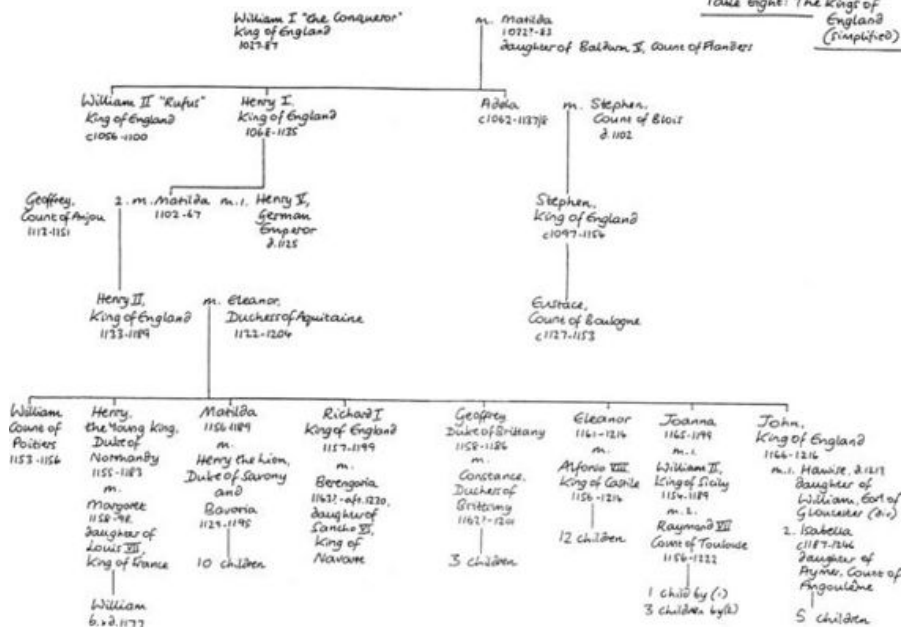 Table Eight: The Kings of
England
(simplified)
William I "the Conqueror"
King of England
1027-87
m. Matilda
1032?-83
daughter of Baldwin V, Count of Flanders
William II "Rufus"
King of England
c1056-1100
Henry I,
King of England
1068-1135
Adela
c1062-1137/8
m. Stephen,
Count of Blois
d.1102
Geoffrey,
Count of Anjou
1113-1151
2. m. Matilda m.1. Henry V,
1102-67
German
Emperor
d.1125
Stephen,
King of England
c1097-1154
Henry II,
King of England
1133-1189
m. Eleanor,
Duchess of Aquitaine
1122-1204
Eustace,
Count of Boulogne
c1127-1153
William
Count of
Poitiers
1153-1156
Henry,
the Young King,
Duke of
Normandy
1155-1183
m.
Margaret
1158-98
daughter of
Louis VII,
King of France
William
b.&d.1177
Matilda
1156-1189
m.
Henry the Lion,
Duke of Saxony
and
Bavaria
1129-1195
10 children
Richard I
King of England
1157-1199
m.
Berengaria
1163?-aft.1230,
daughter of
Sancho VI,
King of
Navarre
Geoffrey
Duke of Brittany
1158-1186
m.
Constance,
Duchess of
Brittany
1162?-1201
3 children
Eleanor
1161-1214
m.
Alfonso VIII,
King of Castile
1156-1214
12 children
Joanna
1165-1199
m.1.
William II,
King of Sicily
1154-1189
m.2.
Raymond VII
Count of Toulouse
1156-1222
1 child by (1)
3 children by (2)
John,
King of England
1166-1216
m.1. Hawise, d.1217
daughter of
William, Earl of
Gloucester (div)
2. Isabella
c1187-1246
daughter of
Aymer, Count of
Angoulême
5 children